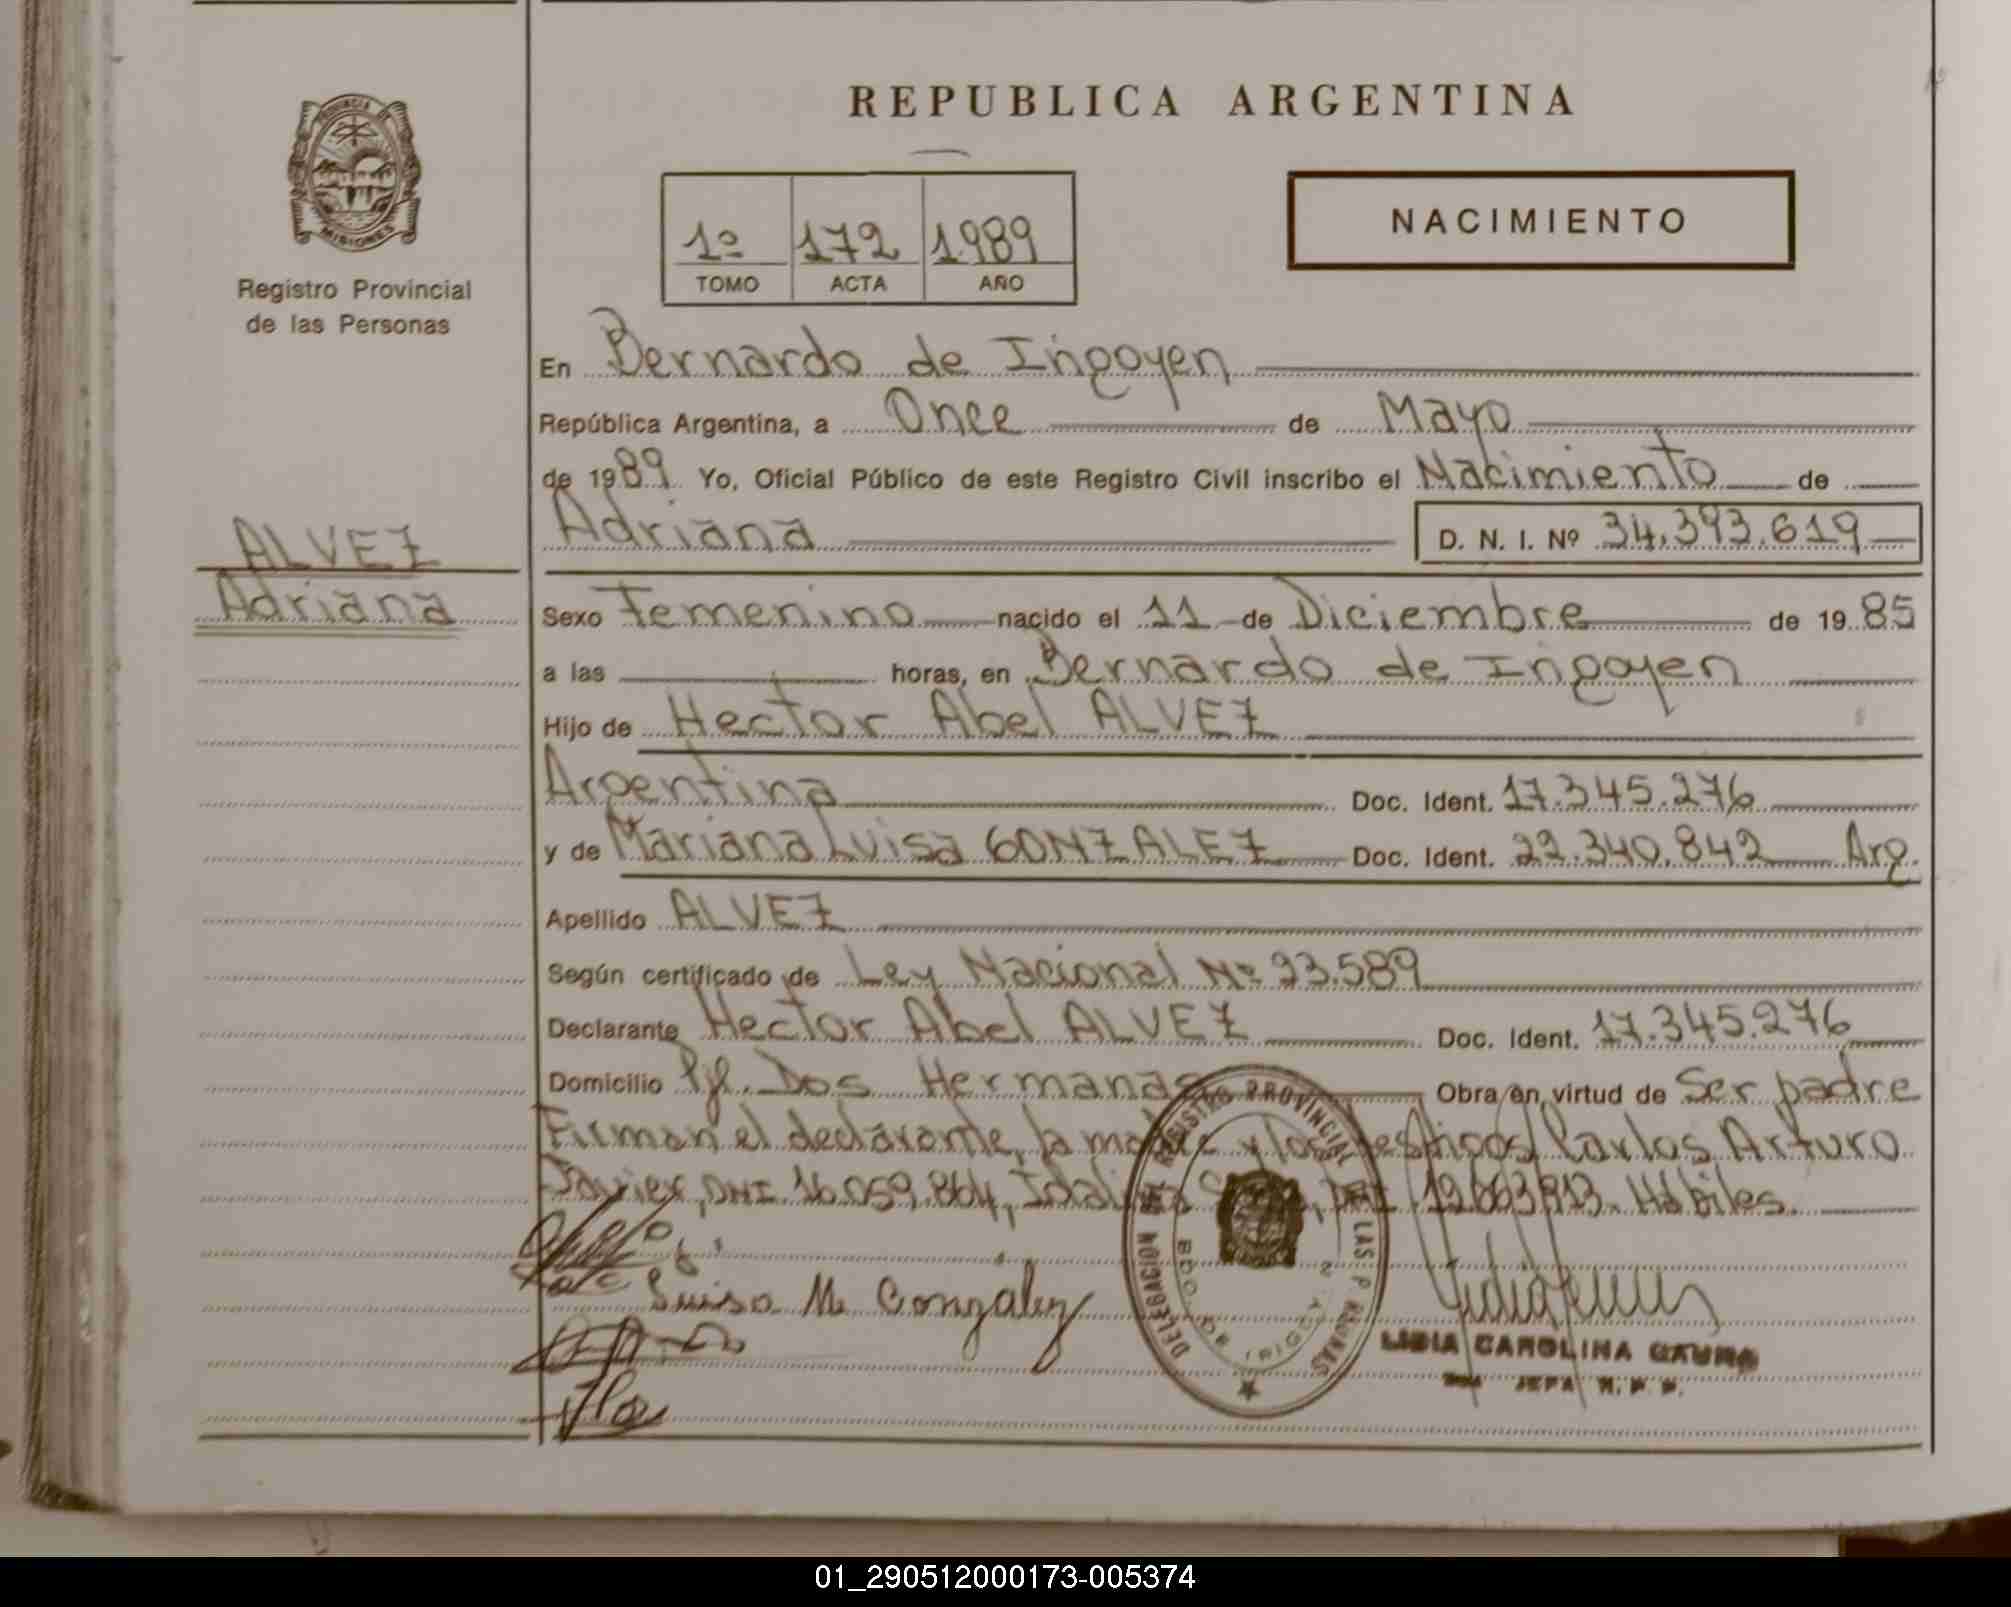 REPUBLICA ARGENTINA
PROVINCIA DE
MISIONES
Registro Provincial
de las Personas
1º 172 1989
TOMO ACTA AÑO
NACIMIENTO
En Bernardo de Irigoyen
República Argentina, a Once de Mayo
de 1989 Yo, Oficial Público de este Registro Civil inscribo el Nacimiento de
Adriana D. N. I. Nº 34.393.619
ALVEZ
Adriana
Sexo Femenino nacido el 11 de Diciembre de 1985
a las horas, en Bernardo de Irigoyen
Hijo de Hector Abel ALVEZ
Argentina Doc. Ident. 17.345.276
y de Mariana Luisa GONZALEZ Doc. Ident. 22.340.842 Arg.
Apellido ALVEZ
Según certificado de Ley Nacional Nº 23.589
Declarante Hector Abel ALVEZ Doc. Ident. 17.345.276
Domicilio Pje. Dos Hermanas Obra en virtud de Ser padre
Firman el declarante, la madre y los testigos Carlos Arturo
Javier, DNI 16.059.864, DNI Hábiles.
Luisa M Gonzalez
DELEGACION DEL REGISTRO PROVINCIAL DE LAS PERSONAS
BDO. DE IRIGOYEN
LIDIA CAROLINA
JEFA R. P. P.
01_290512000173-005374